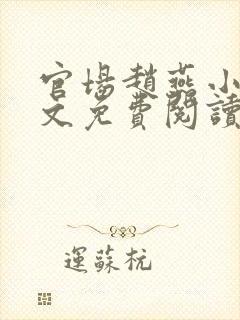 官場趙燕小
文免費閱讀
運蘇杭